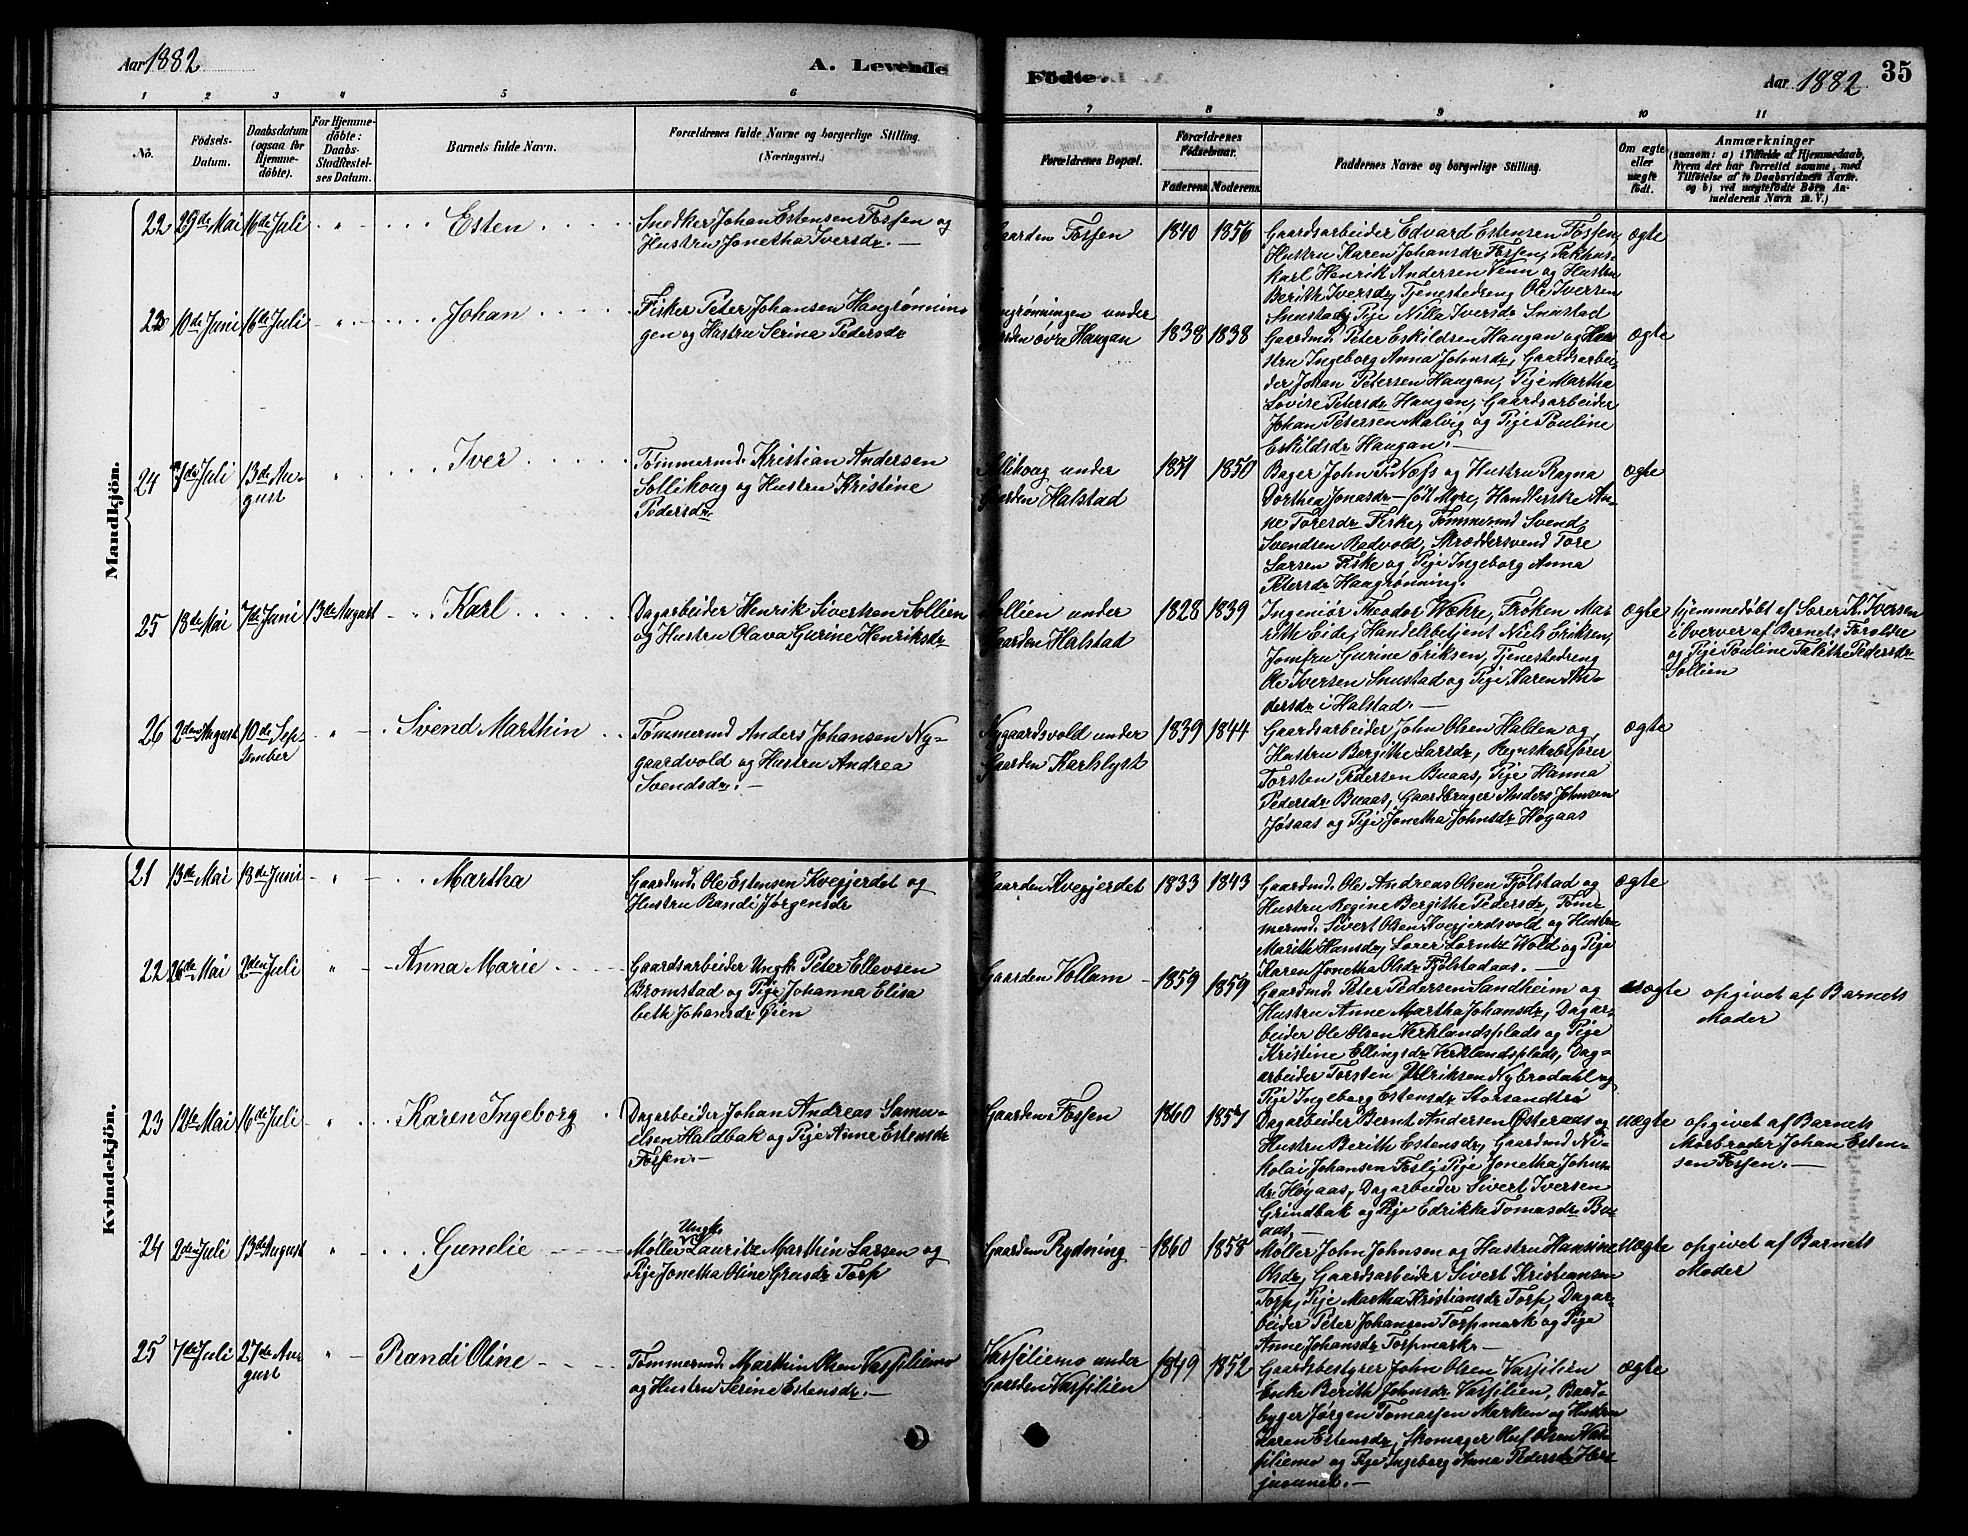 Aar 1882
A. Levende
Födte.
Aar 1882
35
1 2 3 4 5 6 7 8 9 10 11
No.
Födsels-
Datum.
Daabsdatum
(ogsaa for
Hjemme-
döbte).
For Hjemme-
döbte:
Daabs-
Stadfestel-
ses Datum.
Barnets fulde Navn.
Forældrenes fulde Navne og borgerlige Stilling.
(Næringsvei.)
Forældrenes Bopæl.
Forældrenes
Födselsaar.
Faderens. Moderens.
Faddernes Navne og borgerlige Stilling.
Om ægte
eller
uægte
födt.
Anmærkninger
(saasom: a) i Tilfælde af Hjemmedaab,
hvem der har forrettet samme, med
Tilföielse af to Daabsvidners Navne.
og b) ved uægtefödte Börn An-
melderens Navn m. V.)
Mandkjön.
22 29de Mai 16de Juli " Esten
Snedker Johan Estensen Fossen og
Hustru Jonetha Iversdr. —
Gaarden Fossen 1840 1856
Gaardsarbeider Edvard Estensen Fossen,
Hustru Karen Johansdr Fossen, Pakhus-
karl Henrik Andersen Venn og Hustru
Berith Iversdr, Tjenestedreng Ole Iversen
Smustad, Pige Nilla Iversdr Smustad
ægte
23 10de Juni 16de Juli " Johan
Fisker Peter Johansen Haugrønnin-
gen og Hustru Serina Pedersdr
Haugrønningen under
Gaarden øvre Haugan 1838 1838
Gaardmd. Peter Eskildsen Haugan og Hu-
stru Ingeborg Anna Johnsdr, Gaardsarbei-
der Johan Petersen Haugan, Pige Martha
Lovise Petersdr Haugan, Gaardsarbeider
Johan Petersen Malvig og Pige Pouline
Eskildsdr Haugan. —
ægte
24 Juli 13de Au-
gust " Iver
Tømmermd. Kristian Andersen
Sollihaug og Hustru Kristine
Pedersdr
Sollihaug under
Gaarden Halstad 1851 1850
Bager John P. Næss og Hustru Ragna
Dorthea Jonasdr — født Myre, Handlerske An-
ne Toresdr Fiske, Tømmermd Svend
Svendsen Radvold, Skræddersvend Tore
Larsen Fiske og Pige Ingeborg Anna
Petersdr Haugrønning.
ægte
25 18de Mai 7de Juni 13de August Karl
Dagarbeider Henrik Sivertsen Sollien
og Hustru Olava Gurine Henriksdr
Sollien under
Gaarden Halstad 1828 1839
Ingeniør Theodor Wæhre, Frøken Ma-
rith Eide, Handelsbetjent Niels Eriksen,
Jomfru Gurine Eriksen, Tjenestedreng
Ole Iversen Smustad og Pige Karen An-
dersdr i Halstad. —
ægte
hjemmedøbt af Lærer K. Iversen
i Overvær af Barnets Forældre
og Pige Pouline Pedersdr
Sollien
26 2den August 10de Sep-
tember " Svend Marthin
Tømmermd Anders Johansen Ny-
gaardvold og Hustru Andrea
Svendsdr. —
Nygaardsvold under
Gaarden Karlslyst 1839 1844
Gaardsarbeider John Olsen Halden og
Hustru Bergithe Larsdr, Regnskabsfører
Torsten Pedersen Buaas, Pige Hanna
Pedersdr Buaas, Gaardbruger Anders Johnsen
Jøsaas og Pige Jonetha Johnsdr Høgaas
ægte
Kvindekjön.
21 13de Mai 18de Juni " Martha
Gaardmd. Ole Estensen Kvegjerdet og
Hustru Randi Jørgensdr
Gaarden Kvegjerdet 1833 1843
Gaardmd. Ole Andreas Olsen Fjølstad og
Hustru Regine Bergithe Pedersdr, Tøm-
mermd. Sivert Olsen Kvegjerdsvold og Hustru
Marith Hansdr, Lærer Lorntz Wold og Pige
Karen Jonetha Olsdr Fjølstadaas. —
ægte
22 26de Mai 2den Juli " Anna Marie
Gaardsarbeider Ungk. Peter Ellevsen
Bromstad og Pige Johanna Elisa
beth Johansdr Gien
Gaarden Vollam 1859 1859
Gaardmd. Peter Pedersen Sandheim og
Hustru Anne Martha Johansdr, Dagar-
beider Ole Olsen Verklandsplads og Pige
Kristine Ellingsdr Verklandsplads, Dag-
arbeider Torsten Ulriksen Nybrodahl og
Pige Ingeborg Estensdr Storsandtrø
uægte
opgivet af Barnets
Moder
23 12te Mai 16de Juli " Karen Ingeborg
Dagarbeider Johan Andreas Samu-
elsen Haldbak og Pige Anne Estensdr
Fossen. —
Gaarden Fossen 1860 1857
Dagarbeider Bernt Andersen Østeraas og
Hustru Berith Estensdr, Gaardmd Ni-
kolai Johansen Fosli, Pige Jonetha Johns-
dr Høgaas, Dagarbeider Sivert Iversen
Grindbak og Pige Edrikke Tomasdr Bu-
aas. —
uægte
opgivet af Barnets
Morbroder Johan Esten-
sen Fossen. —
24 2den Juli 13de August " Gunelie
Møller Ungk. Lauritz Marthin Larsen og
Pige Jonetha Oline Greisdr Torp
Gaarden Rydning 1860 1858
Møller John Johnsen og Hustru Hansine
Olsdr, Gaardsarbeider Sivert Kristiansen
Torp, Pige Martha Kristiansdr Torp, Dagar-
beider Peter Johansen Torpmark og Pige
Anne Johansdr Torpmark. —
Uægte
opgivet af Barnets
Moder
25 7de Juli 27de Au-
gust " Randi Oline
Tømmermd. Marthin Olsen Vassiliemo
og Hustru Serine Estensdr. —
Vassiliemo under
Gaarden Vassilien 1849 1852
Gaardsbestyrer John Olsen Vassilien
Enke Berith Johnsdr Vassilien, Baad-
bygger Jørgen Tomassen Marken og Hustru
Karen Estensdr, Skomager Oluf Olsen Vas-
siliemo og Pige Ingeborg Anna Pedersdr
ægte